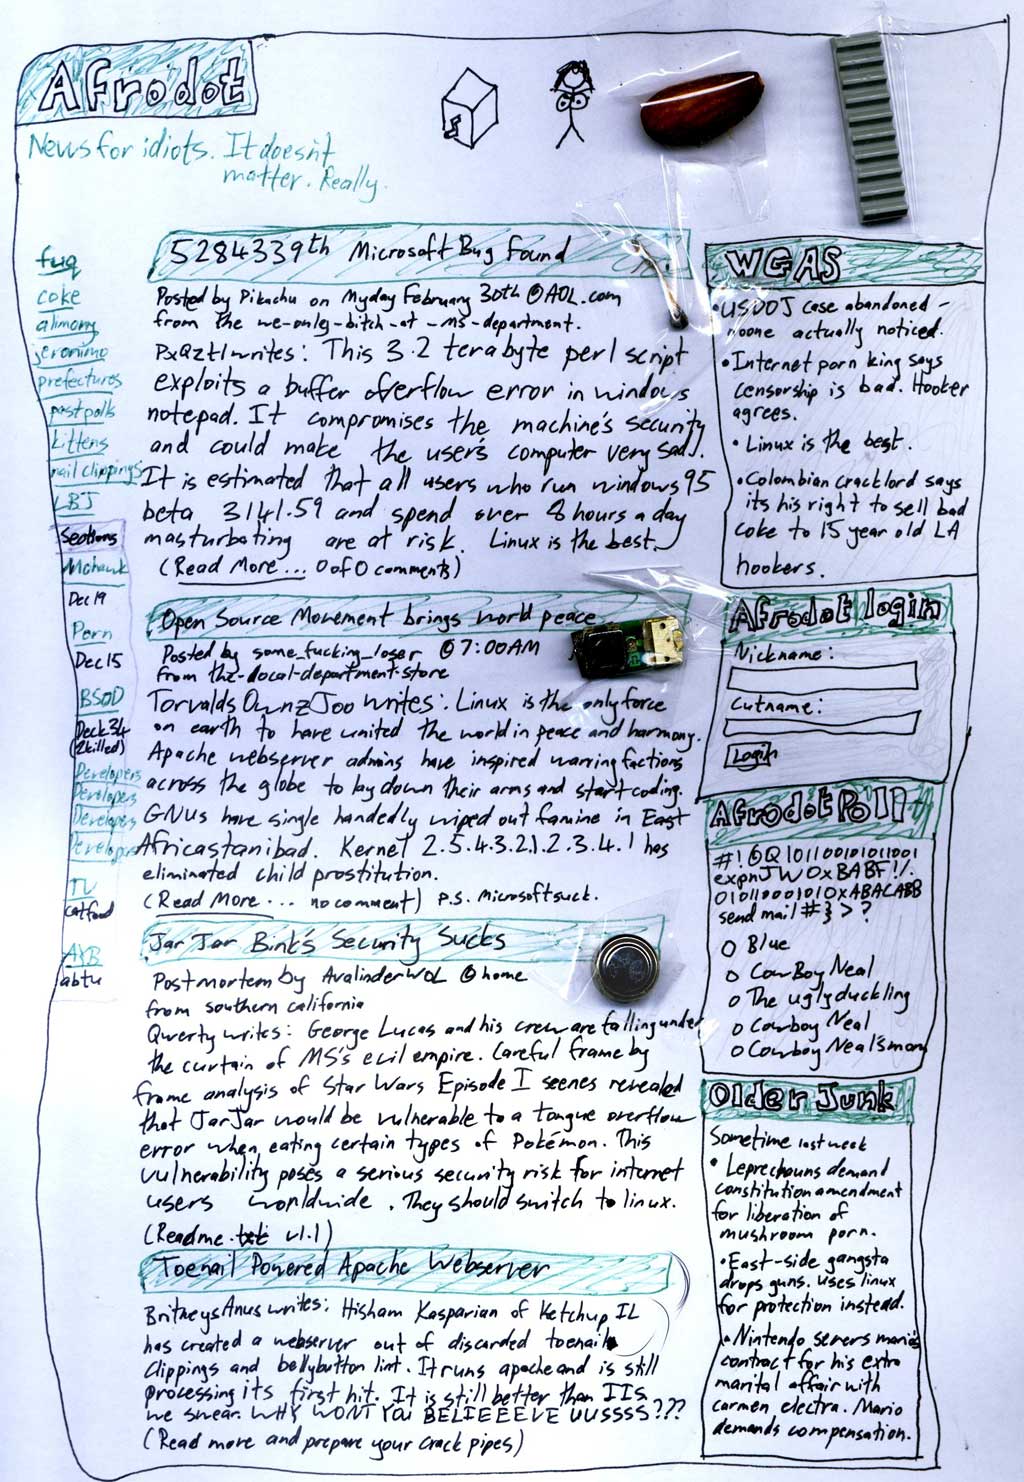 Afrodot
News for idiots. It doesn't
matter. Really.
fuq
coke
alimony
jeronimo
prefectures
past polls
kittens
nail clippings
LBJ
Sections
Mohawk
Dec 19
Porn
Dec 15
BSOD
Deck 34
(2 killed)
Developers
Developers
Developers
Developers
TV
catfood
AYB
abtu
5284339th Microsoft Bug Found
Posted by Pikachu on Myday February 30th @AOL.com
from the we-only-bitch-at-MS-department.
PxQztl writes: This 3.2 terabyte perl script
exploits a buffer overflow error in windows
notepad. It compromises the machine's security
and could make the user's computer very sad.
It is estimated that all users who run windows 95
beta 3141.59 and spend over 8 hours a day
masturbating are at risk. Linux is the best.
(Read More... 0 of 0 comments)
Open Source Movement brings world peace
Posted by some_fucking_loser @7:00AM
from the-local-department-store
Torvalds OwnzJoo writes: Linux is the only force
on earth to have united the world in peace and harmony.
Apache webserver admins have inspired warring factions
across the globe to lay down their arms and start coding.
GNUs have single handedly wiped out famine in East
Africastanibad. Kernel 2.5.4.3.2.1.2.3.4.1 has
eliminated child prostitution.
(Read More... no comment) P.S. Microsoft suck.
Jar Jar Bink's Security Sucks
Post mortem by AvalinderWOL @home
from southern california
Qwerty writes: George Lucas and his crew are falling under
the curtain of MS's evil empire. Careful frame by
frame analysis of Star Wars Episode I scenes revealed
that JarJar would be vulnerable to a tongue overflow
error when eating certain types of Pokémon. This
vulnerability poses a serious security risk for internet
users worldwide. They should switch to linux.
(Readme.txt v1.1)
Toenail Powered Apache Webserver
BritneysAnus writes: Hisham Kasparian of Ketchup IL
has created a webserver out of discarded toenail
clippings and bellybutton lint. It runs apache and is still
processing its first hit. It is still better than IIS
we swear. WHY WONT YOU BELIEEEEVE UUSSSS???
(Read more and prepare your crack pipes)
WGAS
• US DOJ case abandoned -
noone actually noticed.
• Internet porn king says
censorship is bad. Hooker
agrees.
• Linux is the best.
• Colombian cracklord says
its his right to sell bad
coke to 15 year old LA
hookers.
Afrodot login
Nickname:
Cutname:
Login
Afrodot Poll
#!@Q101100101011001
expnJWOxBABF!/.
010110001010xABACABB
send mail #}>?
O Blue
O CowBoy Neal
O The ugly duckling
O Cowboy Neal
O Cowboy Neal's mom
Older Junk
Sometime last week
• Leprechauns demand
constitution amendment
for liberation of
mushroom porn.
• East-side gangsta
drops guns. uses linux
for protection instead.
• Nintendo severs mario's
contract for his extra
marital affair with
carmen electra. Mario
demands compensation.